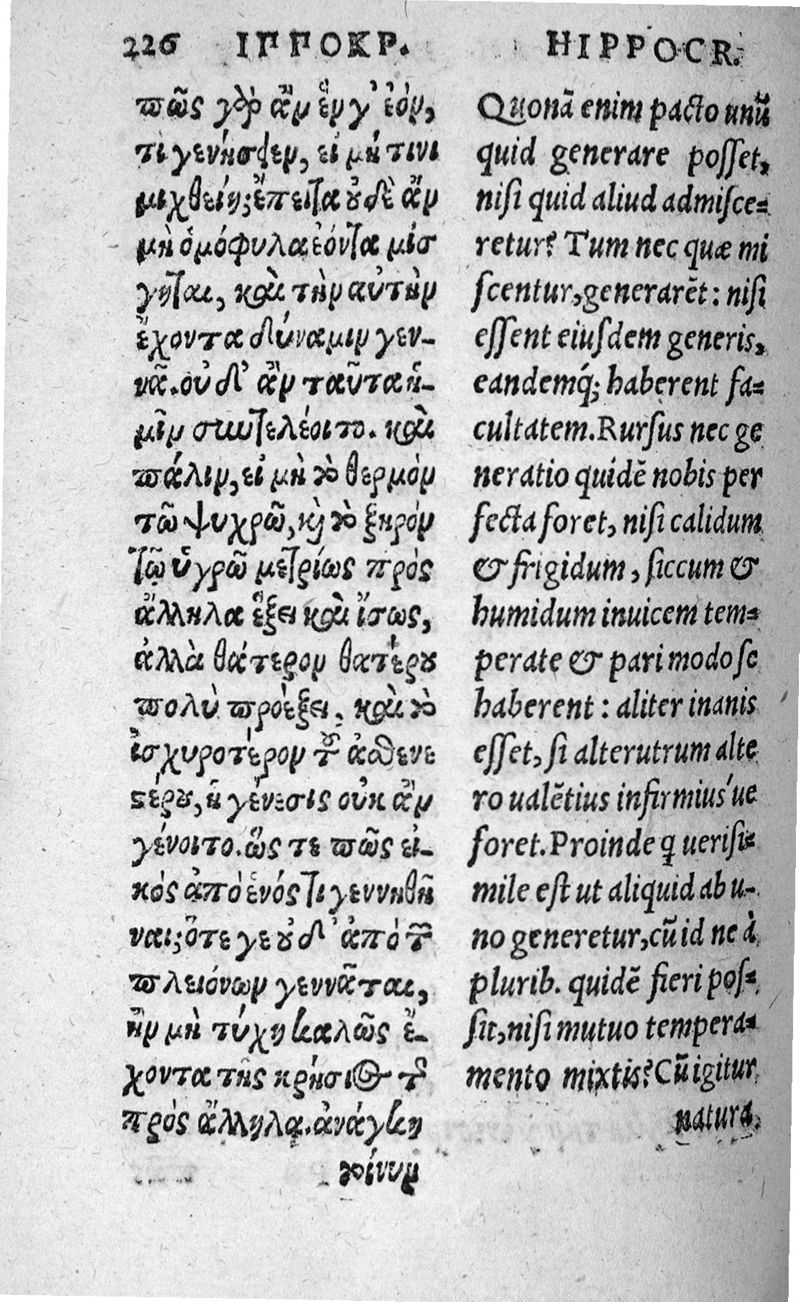 226 ΙΠΠΟΚΡ.
πῶς γὸ ἂν ἓν γ’ ἐόν,
τι γενήσφεν, εἰ μή τινι
μιχθείη; ἔπειτα οὐδὲ ἂν
μὴ ὁμόφυλα ἐόντα μίσ
γηται, καὶ τὴν αὐτὴν
ἔχοντα δύναμιν γεν-
νᾶ. οὐ δ’ ἂν ταῦτα ἡ-
μῖν συντελέοιτο. καὶ
πάλιν, εἰ μὴ τὸ θερμὸν
τῶ ψυχρῶ, κὶ τὸ ξηρὸν
τῷ ὑγρῶ μετρίως πρὸς
ἄλληλα ἕξει καὶ ἴσως,
ἀλλὰ θάτερον θατέρου
πολὺ προέξει, καὶ τὸ
ἰσχυρότερον τοῦ ἀσθενε
στέρου, ἡ γένεσις οὐκ ἂν
γένοιτο. ὥς τε πῶς εἰ-
κὸς ἀπὸ ἑνός τι γεννηθῆ
ναι; ὅτε γε οὐδ’ ἀπὸ τῶν
πλειόνων γεννᾶται,
ἢν μὴ τύχῃ καλῶς ἔ-
χοντα τῆς κρήσιος τῆς
πρὸς ἄλληλα. ἀνάγκη
τοίνυν
HIPPOCR.
Quonā enim pacto unū
quid generare posset,
nisi quid aliud admisce=
retur? Tum nec quæ mi
scentur, generarēt: nisi
essent eiusdem generis,
eandemq́; haberent fa=
cultatem. Rursus nec ge
neratio quidē nobis per
fecta foret, nisi calidum
& frigidum, siccum &
humidum inuicem tem=
perate & pari modo se
haberent: aliter inanis
esset, si alterutrum alte
ro ualētius infirmius'ue
foret. Proinde ꝗ uerisi=
mile est ut aliquid ab u-
no generetur, cū id ne à
plurib. quidē fieri pos=
sit, nisi mutuo tempera=
mento mixtis? Cū igitur
natura